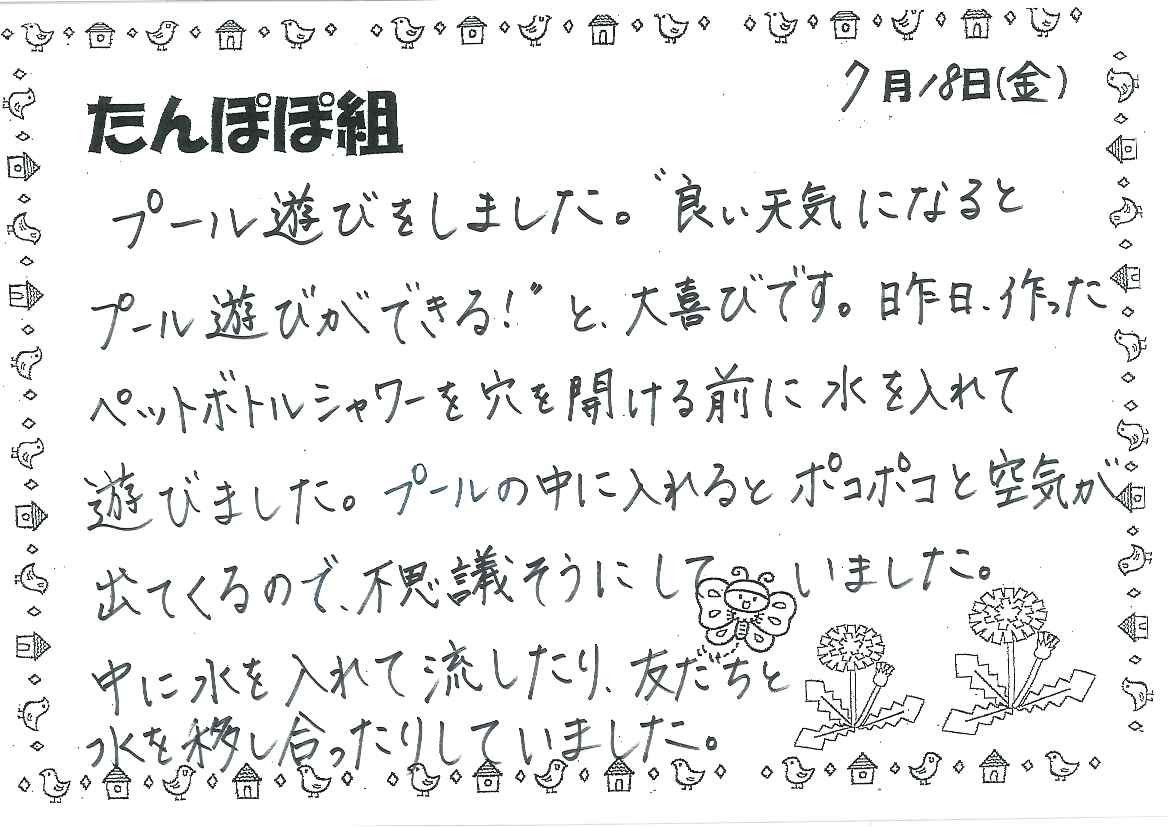 7月18日(金)
たんぽぽ組
プール遊びをしました。〝良い天気になると
プール遊びができる!〟と、大喜びです。昨日、作った
ペットボトルシャワーを穴を開ける前に水を入れて
遊びました。プールの中に入れるとポコポコと空気が
出てくるので、不思議そうにしていました。
中に水を入れて流したり、友だちと
水を移し合ったりしていました。